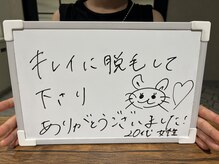 キレイに脱毛して
下さり
ありがとうございました!
20代 女性